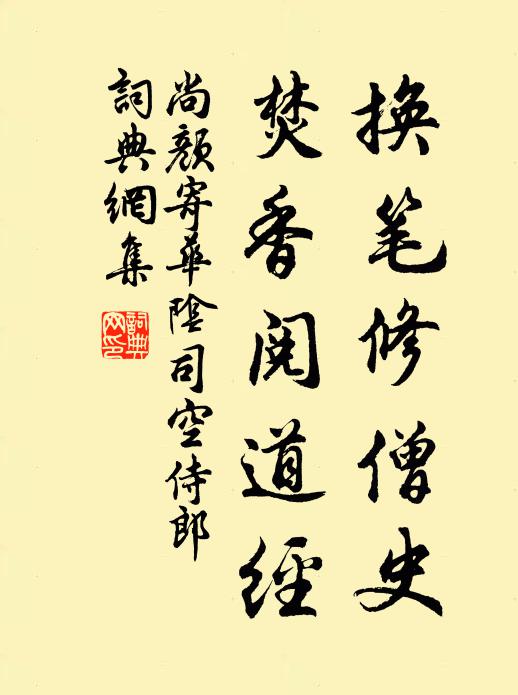 换笔修僧史
焚香阅道經
尚颜寄華陰司空侍郎
詞典網集
詞典網印